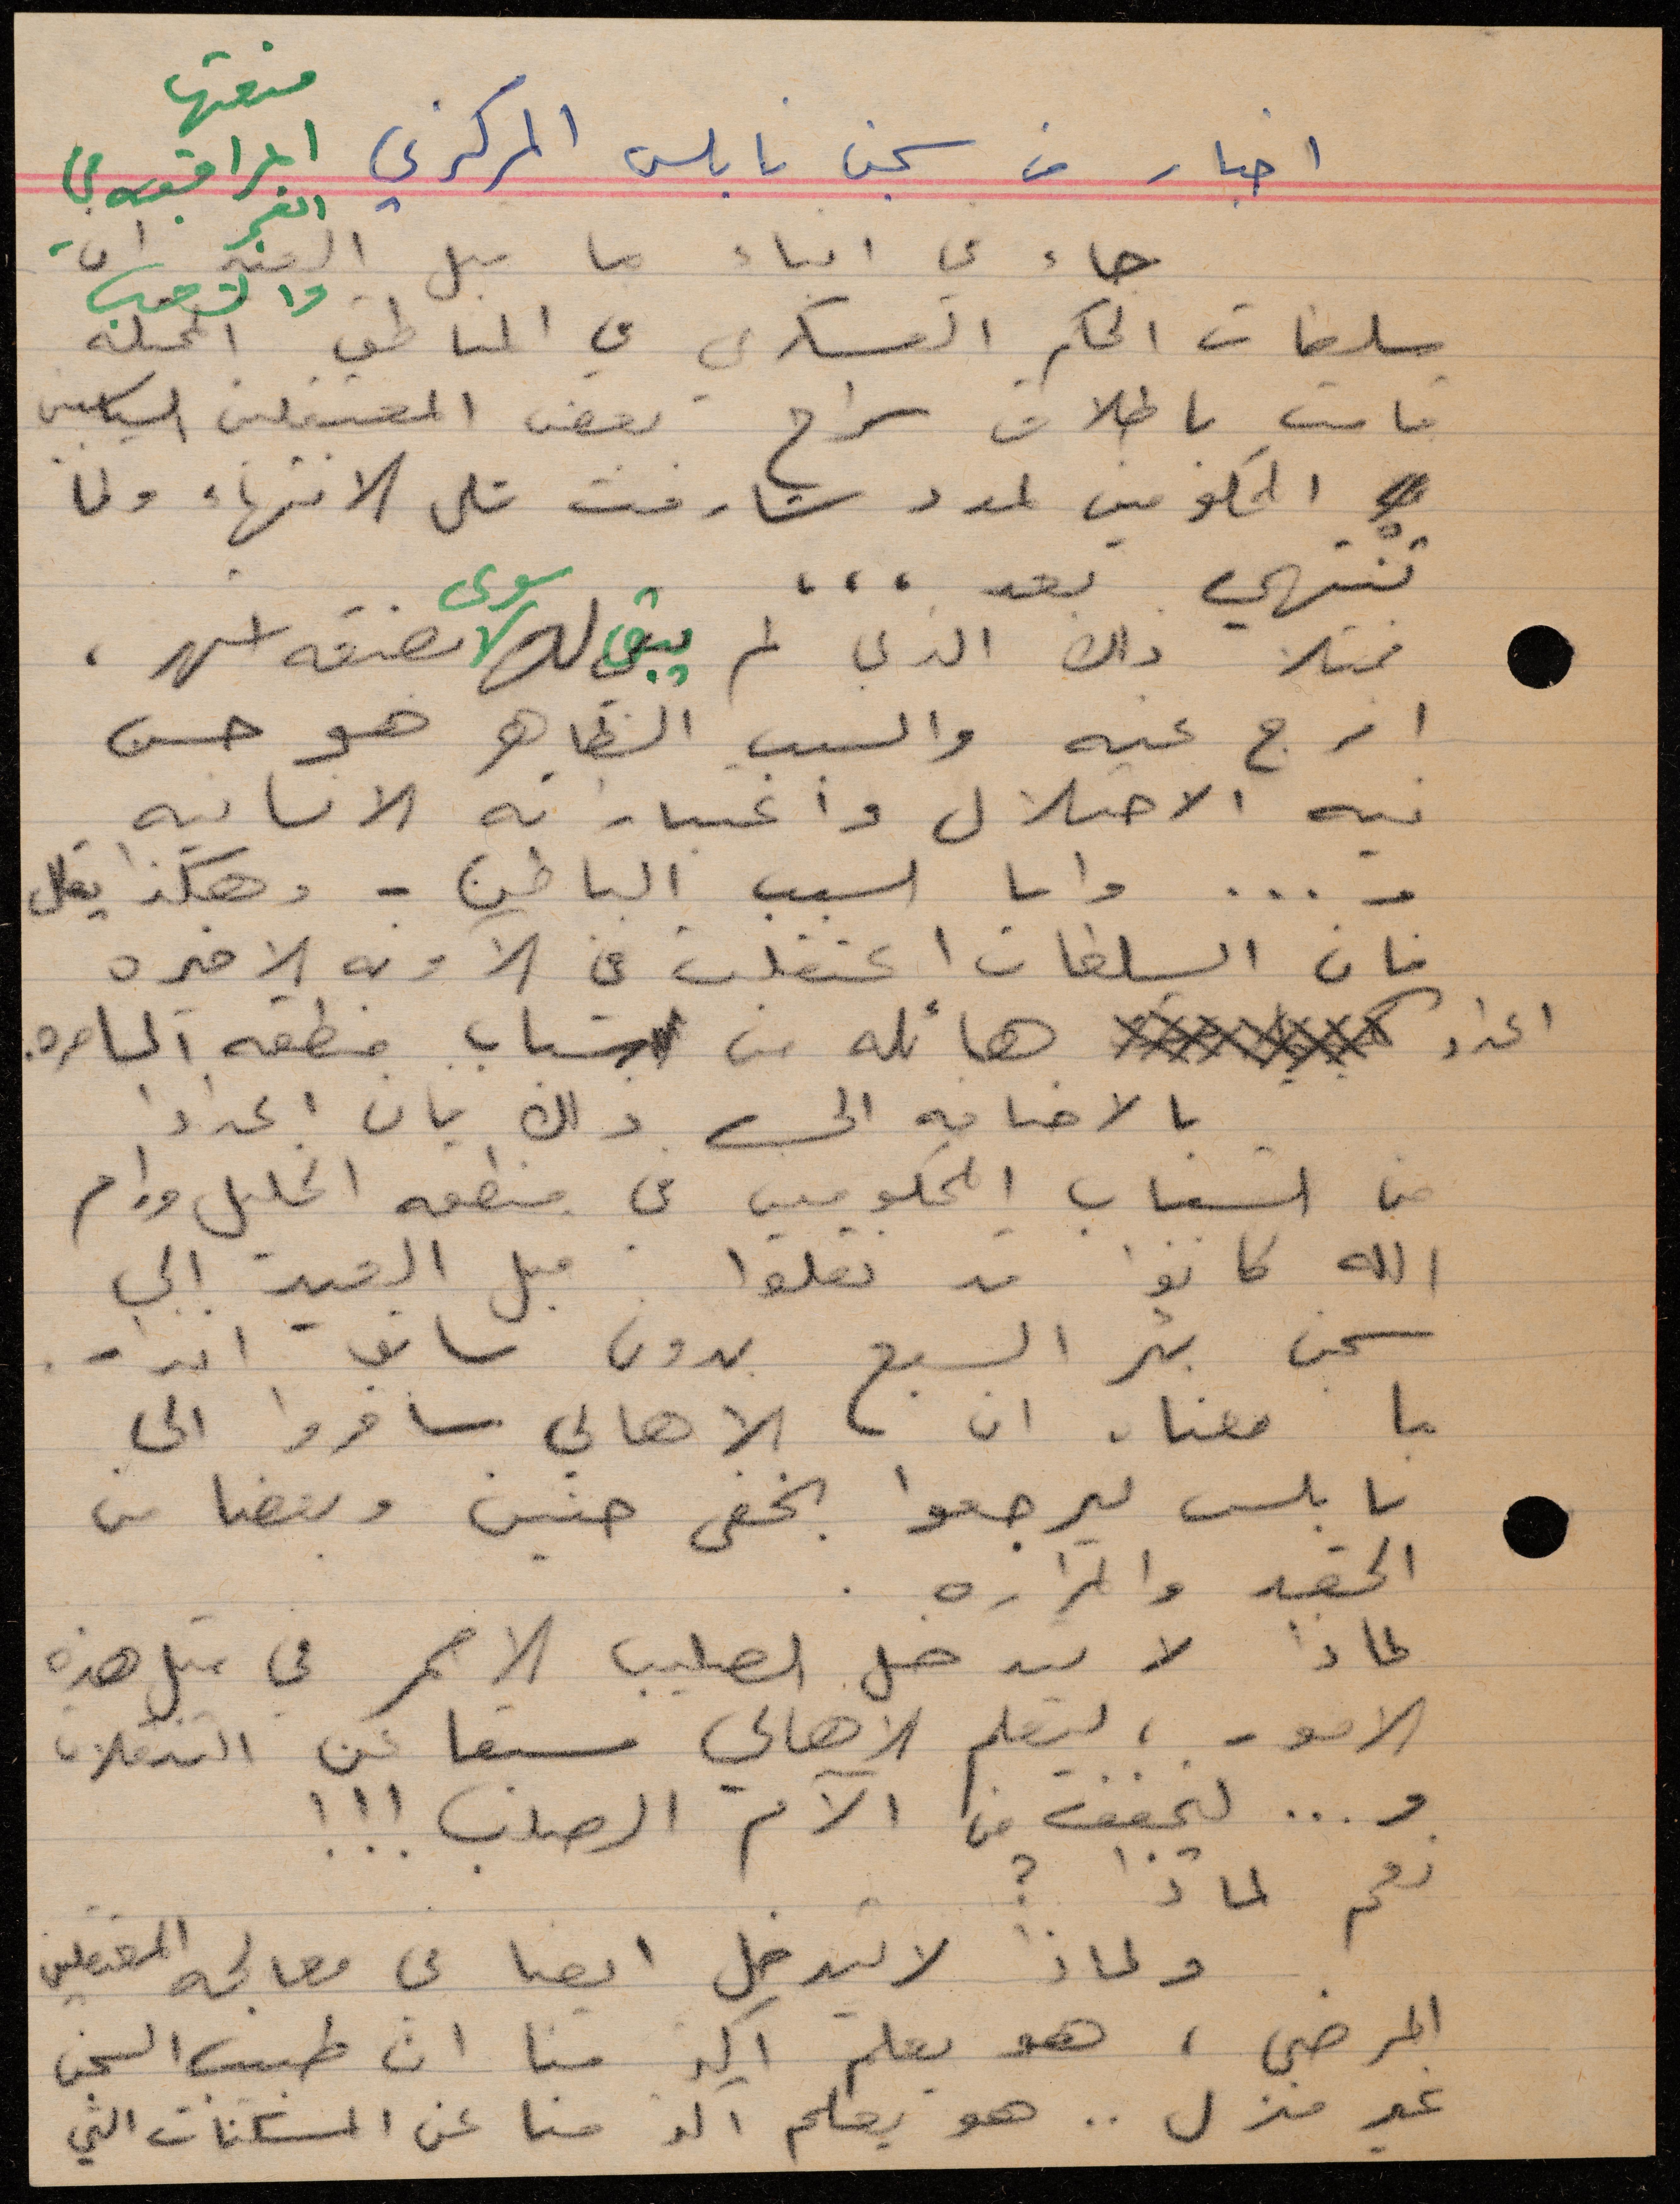 منعتها
المراقبه في
القمر
والتعب
اخبار من سجن نابلس المركزي
جاء في انباء ما قبل العيد ان
سلطات الحكم العسكري في المناطق المحتله
قامت باطلاق سراح بعض المعتقلين السياسيين
المحكومين لمدد شارفت على الانتهاء ولما
تنتهي بعد ...
فمثلا ذاك الذي لم يبقى له سوى بضعة اشهر ،
افرج عنه والسبب الظاهر هو حسن
نيه الاحتلال واعتباراته الانسانيه
و ... واما السبب الباطن - وهكذا يقال
فان السلطات اعتقلت في الآونه الاخيره
اعداد هائله من شباب منطقه الناصره.
بالاضافه الى ذلك بان اعدادا
من الشباب المحكومين في منطقه الخليل ورام
الله كانوا قد نقلوا قبل العيد الى
سجن بئر السبع بدون سابق انذار .
ما معناه ان الاهالي سافروا الى
نابلس ليرجعوا بخفي حنين وبعضا من
الحقد والمراره .
لماذا لا يتدخل الصليب الاحمر في مثل هذه
الامور ، ليتعلم الأهالي مسبقا عن التنقلات
و ... ليخفف من آلام الصليب !!!
نعم لماذا ؟
ولماذا لا يتدخل ايضا في معالجه المعتقلين
المرضى ، هو يعلم اكثر منا ان طبيب السجن
غير منزل .. هو يعلم اكثر منا عن المسكنات التي